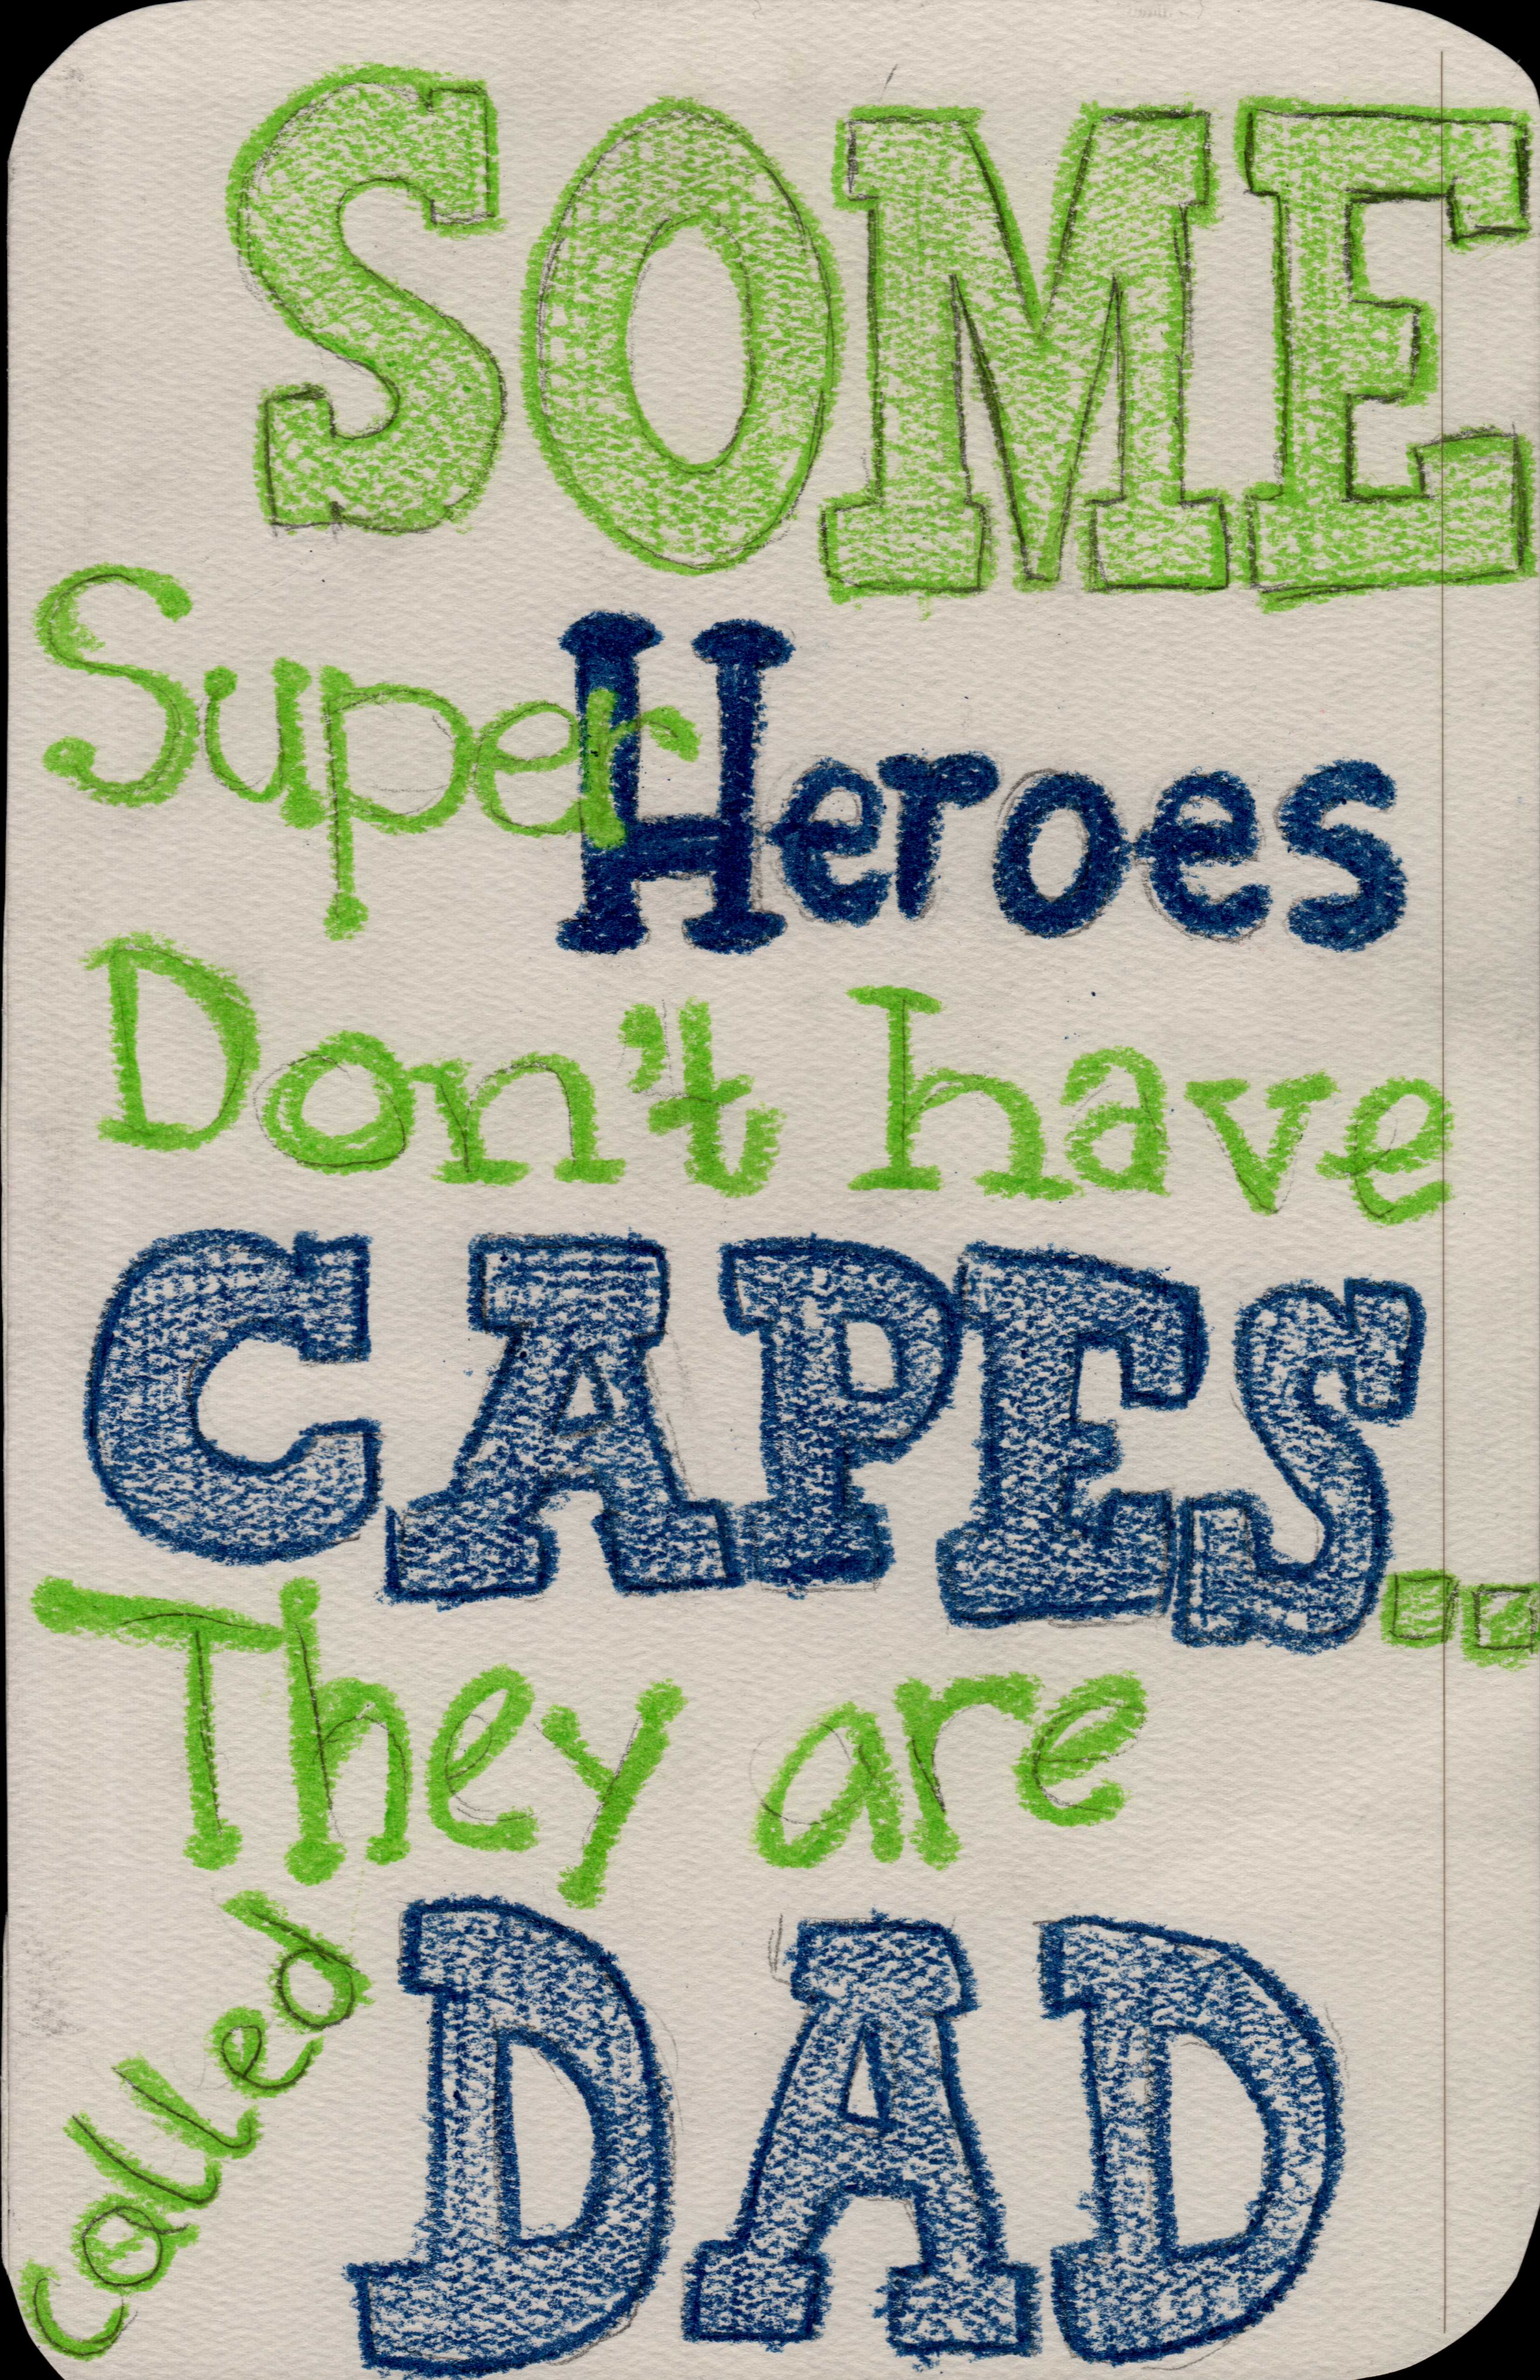 SOME
Super Heroes
Don't have
CAPES..
They are
called DAD